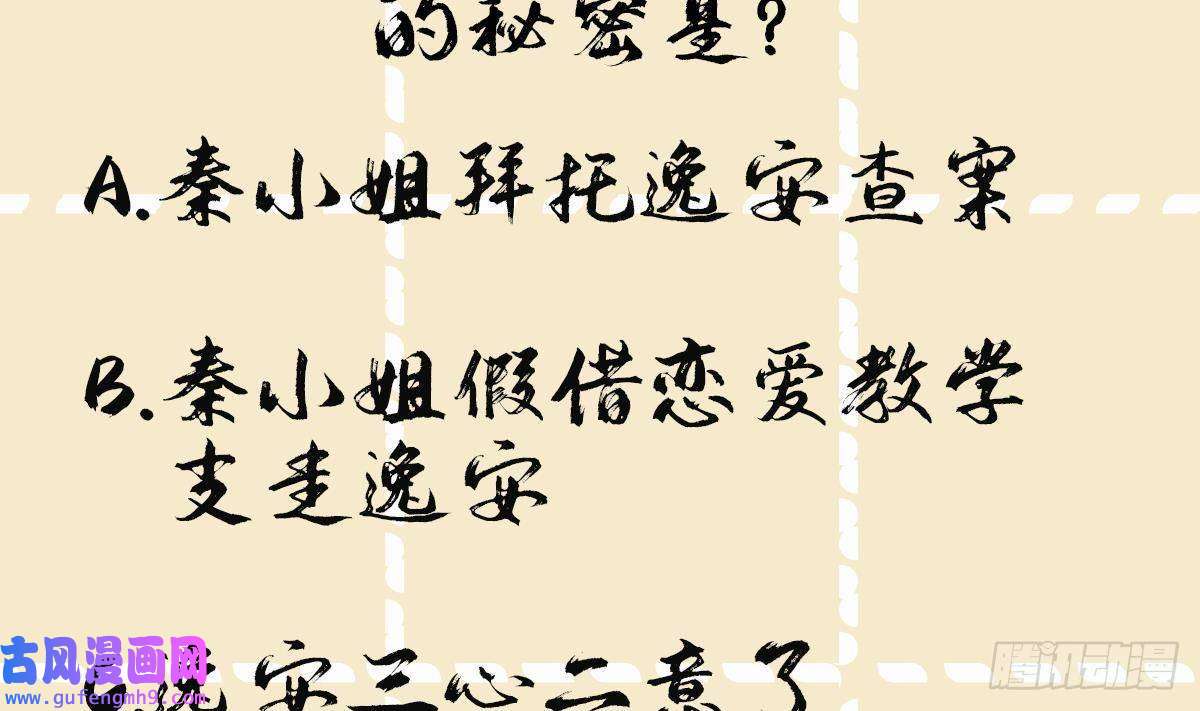 的秘密是?
A.秦小姐拜托逸安查案
B.秦小姐假借恋爱教学
支走逸安
安三心二意了
古风漫画网
www.gufengmh9.com
腾讯动漫